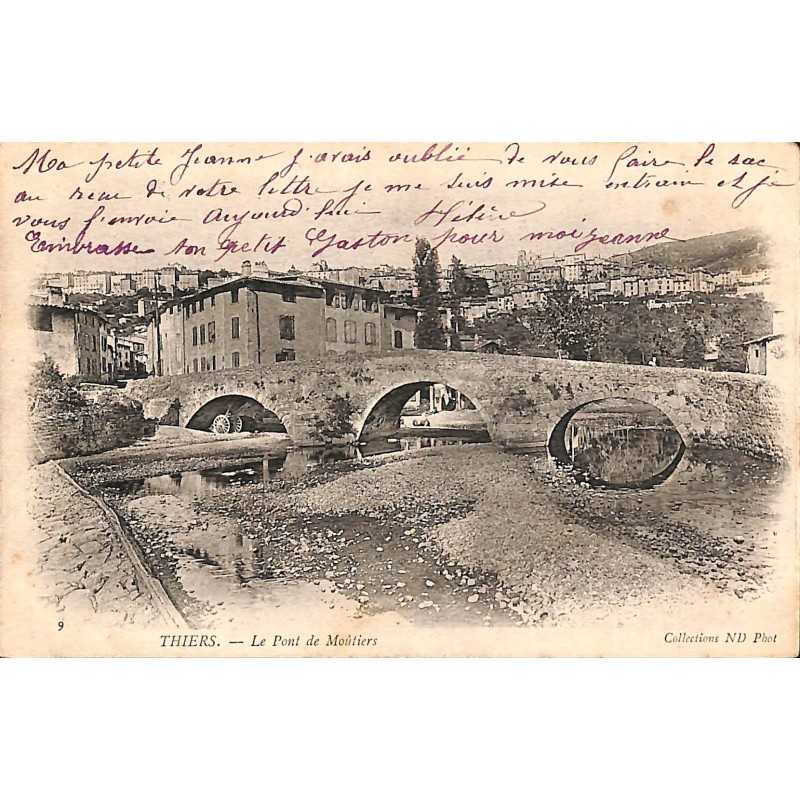 Ma petite Jeanne j'avais oublié de vous faire le sac
au reçu de votre lettre je me suis mise entrain et je
vous l'envoie Aujourd'hui Hélène
Embrasse ton petit Gaston pour moi Jeanne
9
THIERS. — Le Pont de Moûtiers
Collections ND Phot